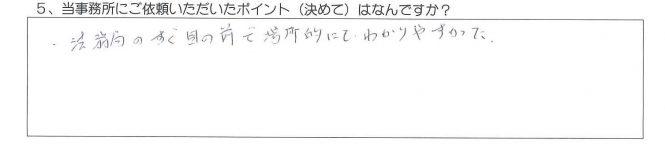 5、当事務所にご依頼いただいたポイント（決めて）はなんですか？
・法務局のすぐ目の前で場所的にもわかりやすかった.